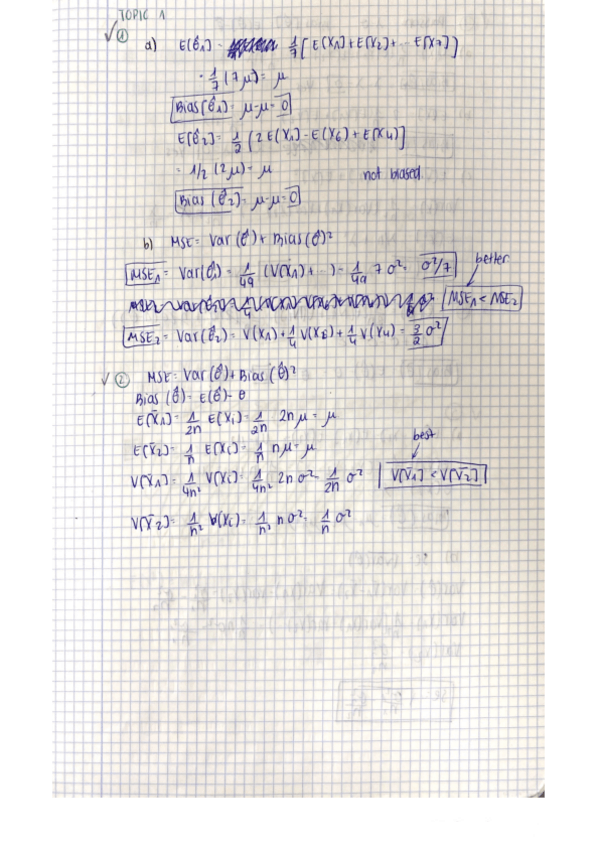 TOPIC 1
✓ ①
a) E(θ̂1) = 1/7 [E(X1) + E(X2) + ... E(X7)]
= 1/7 (7μ) = μ
Bias(θ̂1) = μ-μ = 0
E(θ̂2) = 1/2 [2E(X1) - E(X6) + E(X4)]
= 1/2 (2μ) = μ not biased
Bias(θ̂2) = μ-μ = 0
b) MSE = Var(θ̂) + Bias(θ̂)²
better
MSE1 = Var(θ̂1) = 1/49 (V(X1) + ...) = 1/49 7σ² = σ²/7
MSE1 < MSE2
MSE2 = Var(θ̂2) = V(X1) + 1/4 V(X6) + 1/4 V(X4) = 3/2 σ²
✓ ② MSE = Var(θ̂) + Bias(θ̂)²
Bias(θ̂) = E(θ̂) - θ
E(X̄1) = 1/2n E(Xi) = 1/2n 2nμ = μ
E(X̄2) = 1/n E(Xi) = 1/n nμ = μ
best
V(X̄1) = 1/4n² V(Xi) = 1/4n² 2nσ² = 1/2n σ² V(X̄1) < V(X̄2)
V(X̄2) = 1/n² V(Xi) = 1/n² nσ² = 1/n σ²